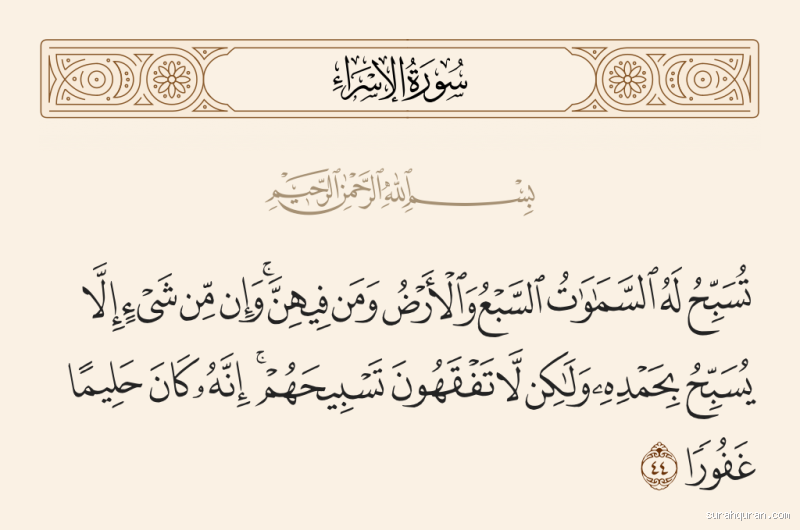 سُورَةُ الإِسْرَاءِ
بِسْمِ ٱللَّهِ ٱلرَّحْمَٰنِ ٱلرَّحِيمِ
تُسَبِّحُ لَهُ ٱلسَّمَٰوَٰتُ ٱلسَّبْعُ وَٱلْأَرْضُ وَمَن فِيهِنَّ ۚ وَإِن مِّن شَىْءٍ إِلَّا
يُسَبِّحُ بِحَمْدِهِۦ وَلَٰكِن لَّا تَفْقَهُونَ تَسْبِيحَهُمْ ۚ إِنَّهُۥ كَانَ حَلِيمًا
غَفُورًا ٤٤
surahquran.com